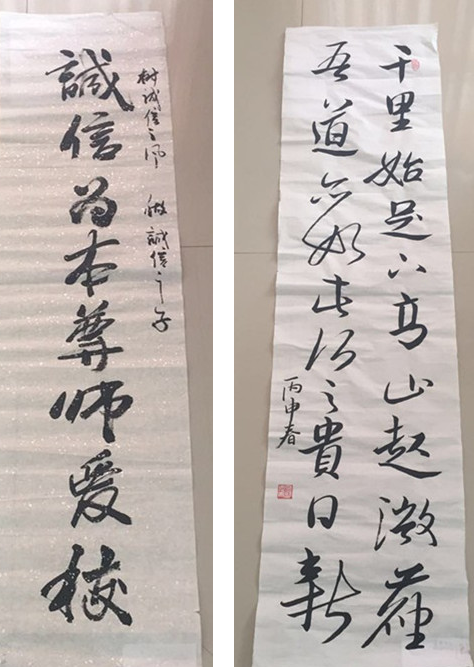 树诚信之风 做誠信之子
誠信为本尊师爱校
千里始足下高山起微塵
吾道亦如此行之貴日新
丙申春